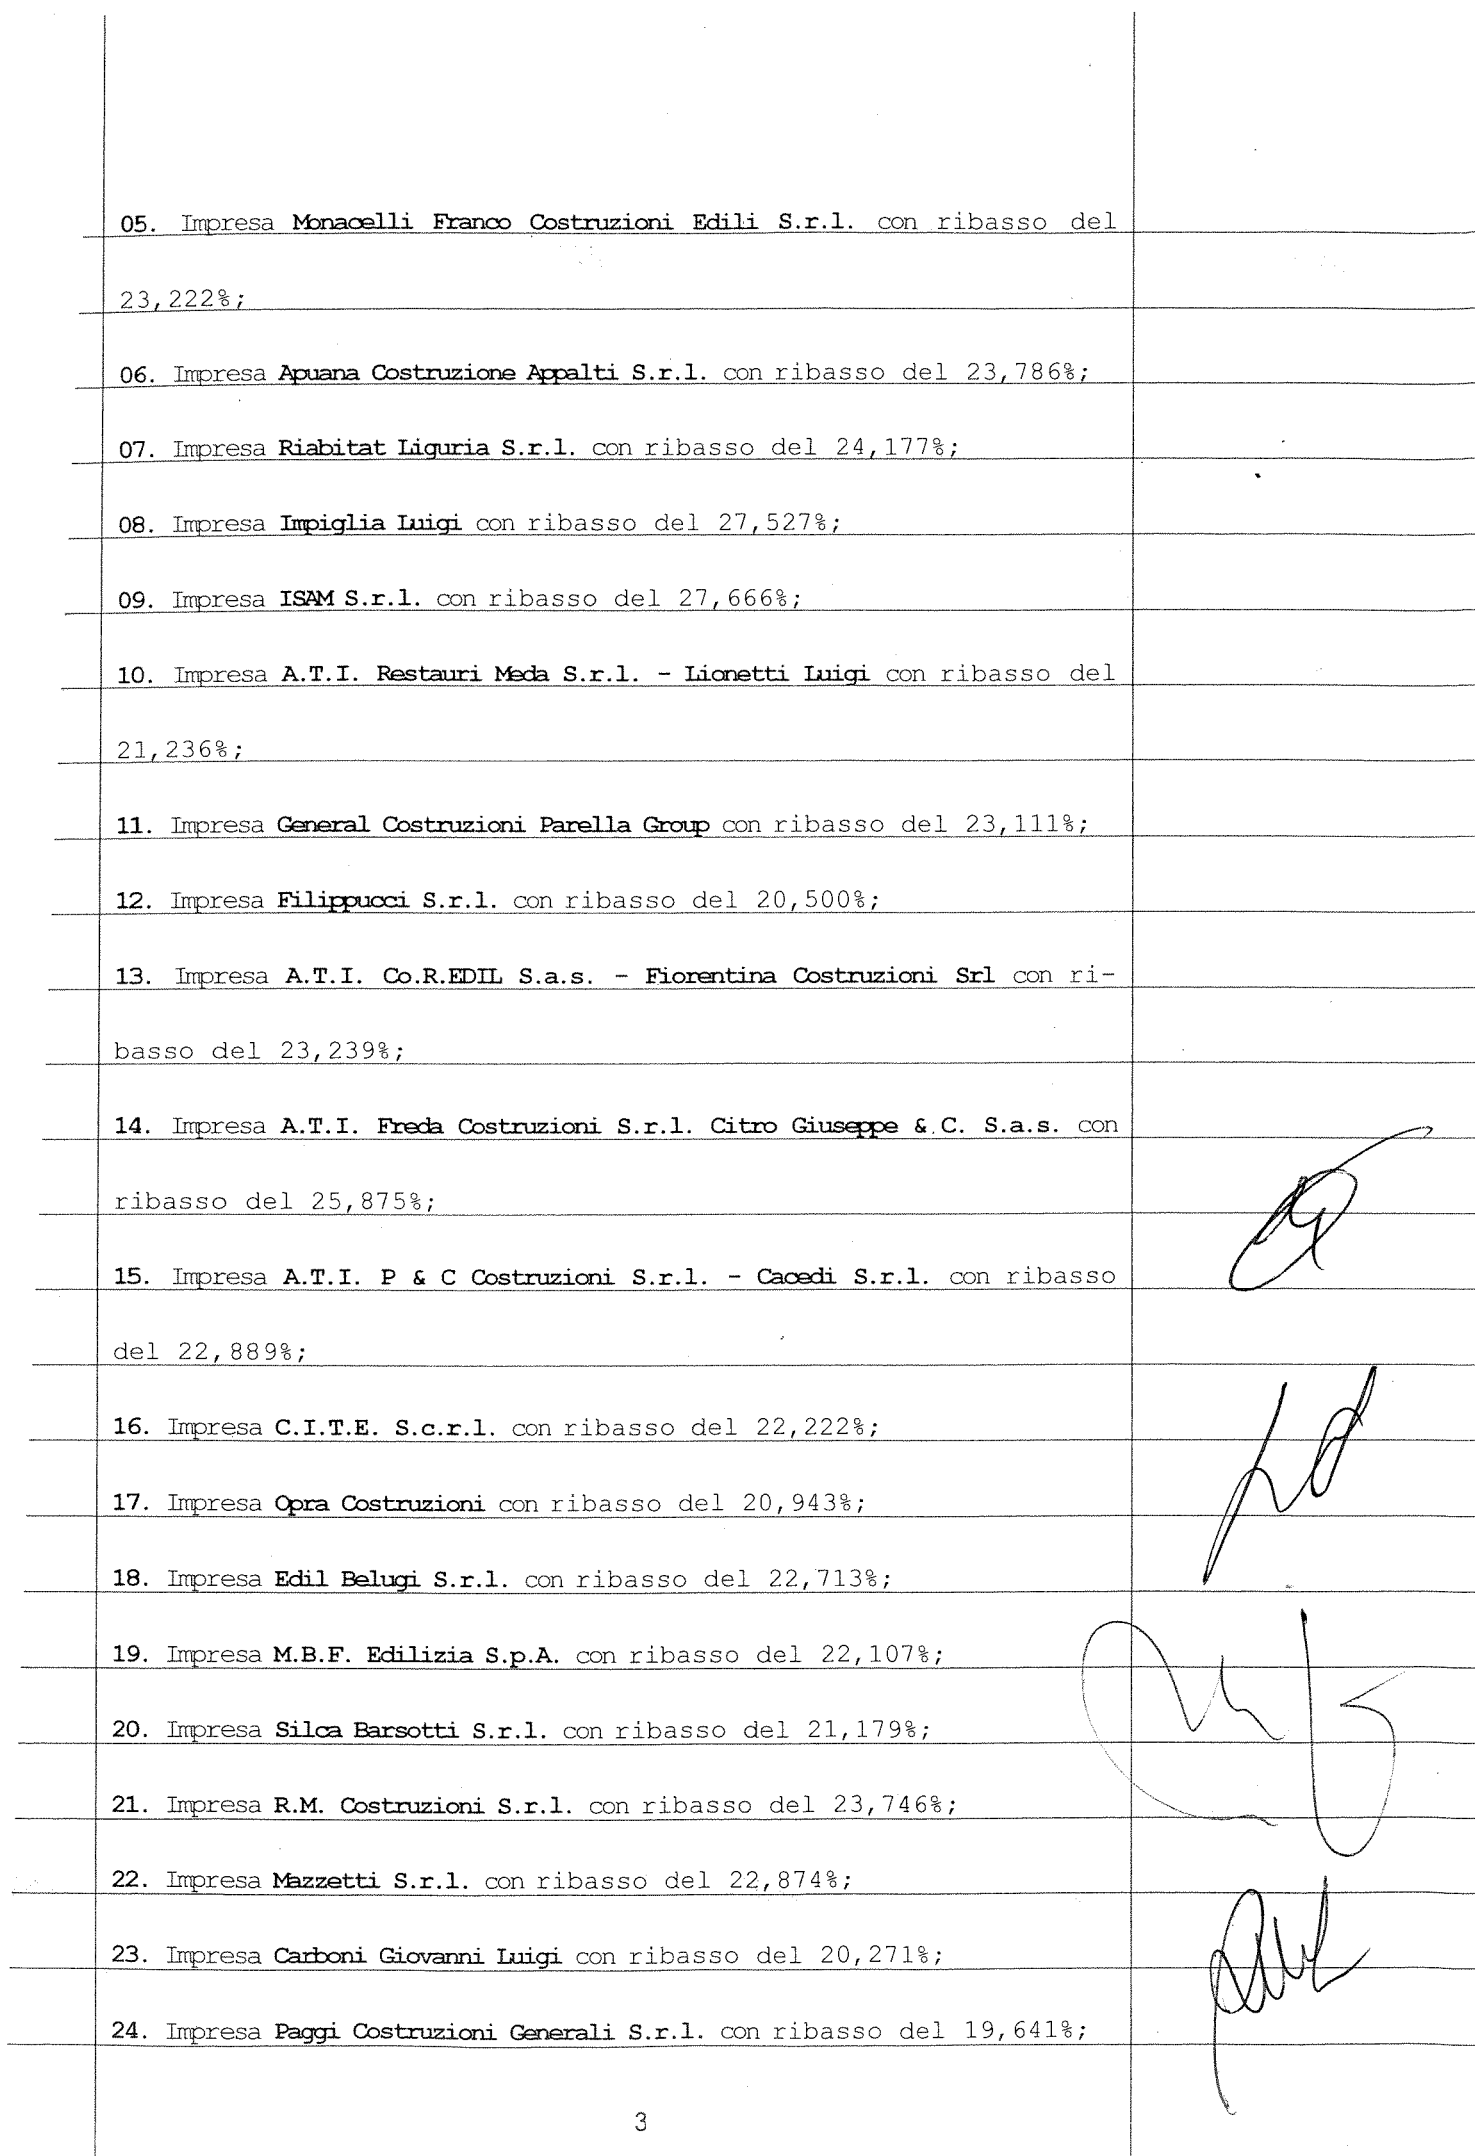 05. Impresa Monacelli Franco Costruzioni Edili S.r.l. con ribasso del
23,222%;
06. Impresa Apuana Costruzione Appalti S.r.l. con ribasso del 23,786%;
07. Impresa Riabitat Liguria S.r.l. con ribasso del 24,177%;
08. Impresa Impiglia Luigi con ribasso del 27,527%;
09. Impresa ISAM S.r.l. con ribasso del 27,666%;
10. Impresa A.T.I. Restauri Meda S.r.l. - Lionetti Luigi con ribasso del
21,236%;
11. Impresa General Costruzioni Parella Group con ribasso del 23,111%;
12. Impresa Filippucci S.r.l. con ribasso del 20,500%;
13. Impresa A.T.I. Co.R.EDIL S.a.s. - Fiorentina Costruzioni Srl con ri-
basso del 23,239%;
14. Impresa A.T.I. Freda Costruzioni S.r.l. Citro Giuseppe & C. S.a.s. con
ribasso del 25,875%;
15. Impresa A.T.I. P & C Costruzioni S.r.l. - Cacedi S.r.l. con ribasso
del 22,889%;
16. Impresa C.I.T.E. S.c.r.l. con ribasso del 22,222%;
17. Impresa Opra Costruzioni con ribasso del 20,943%;
18. Impresa Edil Belugi S.r.l. con ribasso del 22,713%;
19. Impresa M.B.F. Edilizia S.p.A. con ribasso del 22,107%;
20. Impresa Silca Barsotti S.r.l. con ribasso del 21,179%;
21. Impresa R.M. Costruzioni S.r.l. con ribasso del 23,746%;
22. Impresa Mazzetti S.r.l. con ribasso del 22,874%;
23. Impresa Carboni Giovanni Luigi con ribasso del 20,271%;
24. Impresa Paggi Costruzioni Generali S.r.l. con ribasso del 19,641%;
3